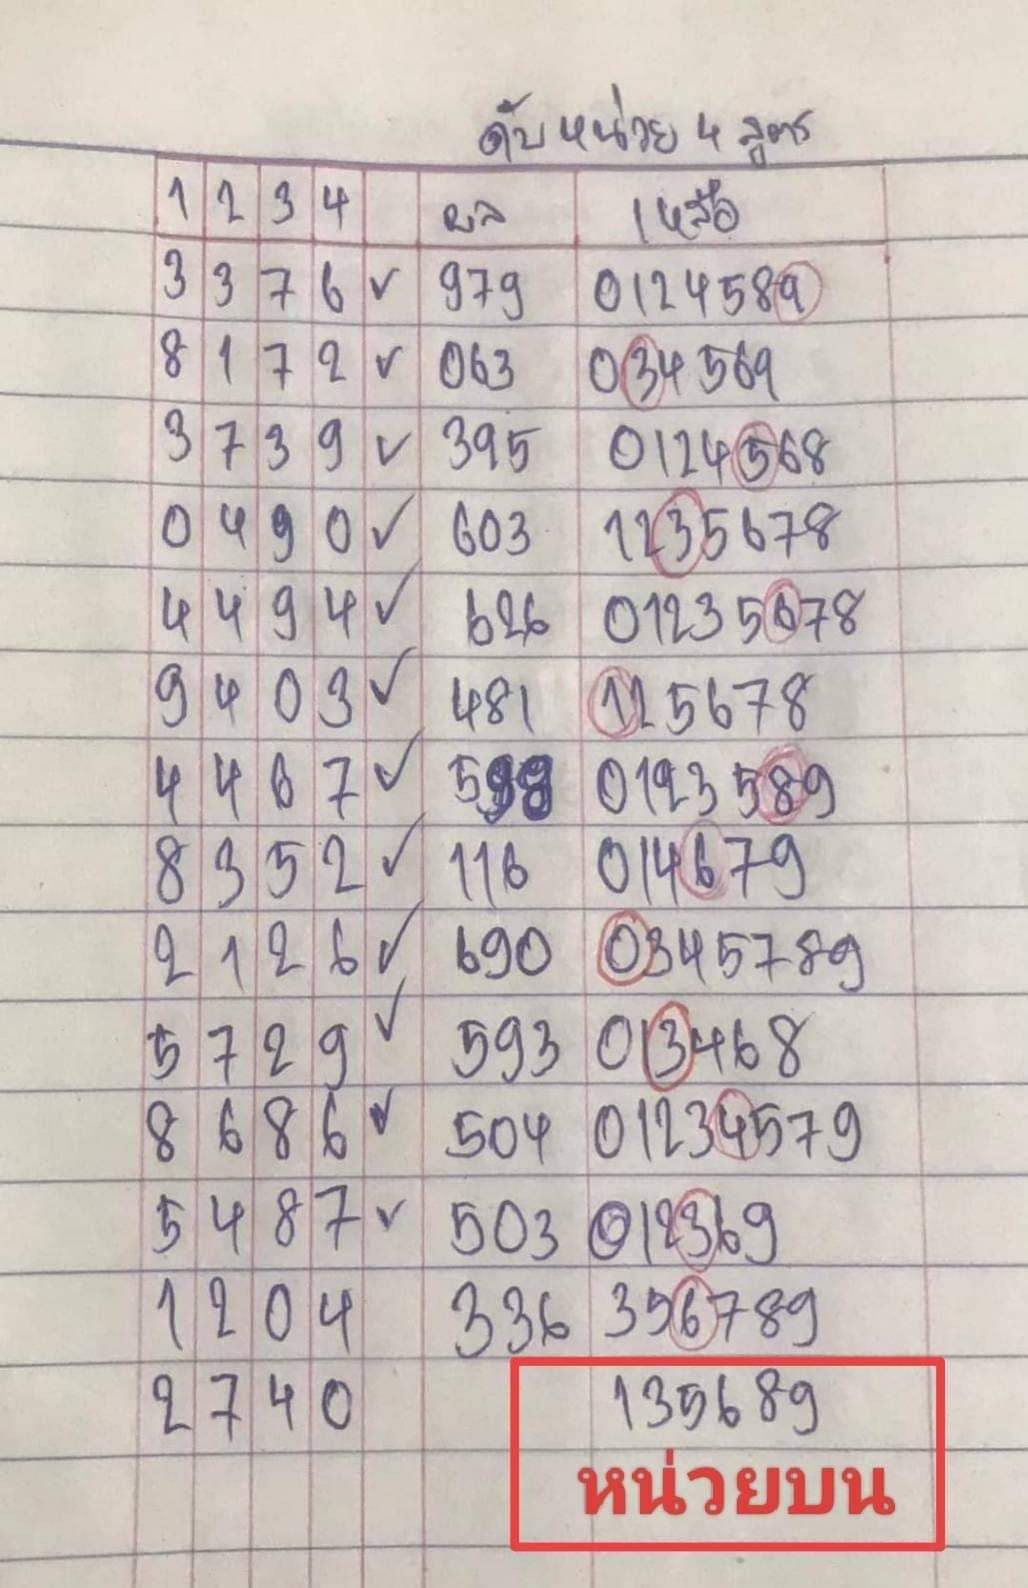 ดับหน่วย 4 สูตร
1 2 3 4 ผล เหลือ
3 3 7 6 ✓ 979 0124589
8 1 7 2 ✓ 063 034569
3 7 3 9 ✓ 395 0124568
0 4 9 0 ✓ 603 1235678
4 4 9 4 ✓ 626 01235678
9 4 0 3 ✓ 481 125678
4 4 6 7 ✓ 598 0123589
8 3 5 2 ✓ 116 014679
2 1 2 6 ✓ 690 0345789
5 7 2 9 ✓ 593 013468
8 6 8 6 ✓ 504 01234579
5 4 8 7 ✓ 503 012369
1 2 0 4 336 356789
2 7 4 0 135689
หน่วยบน